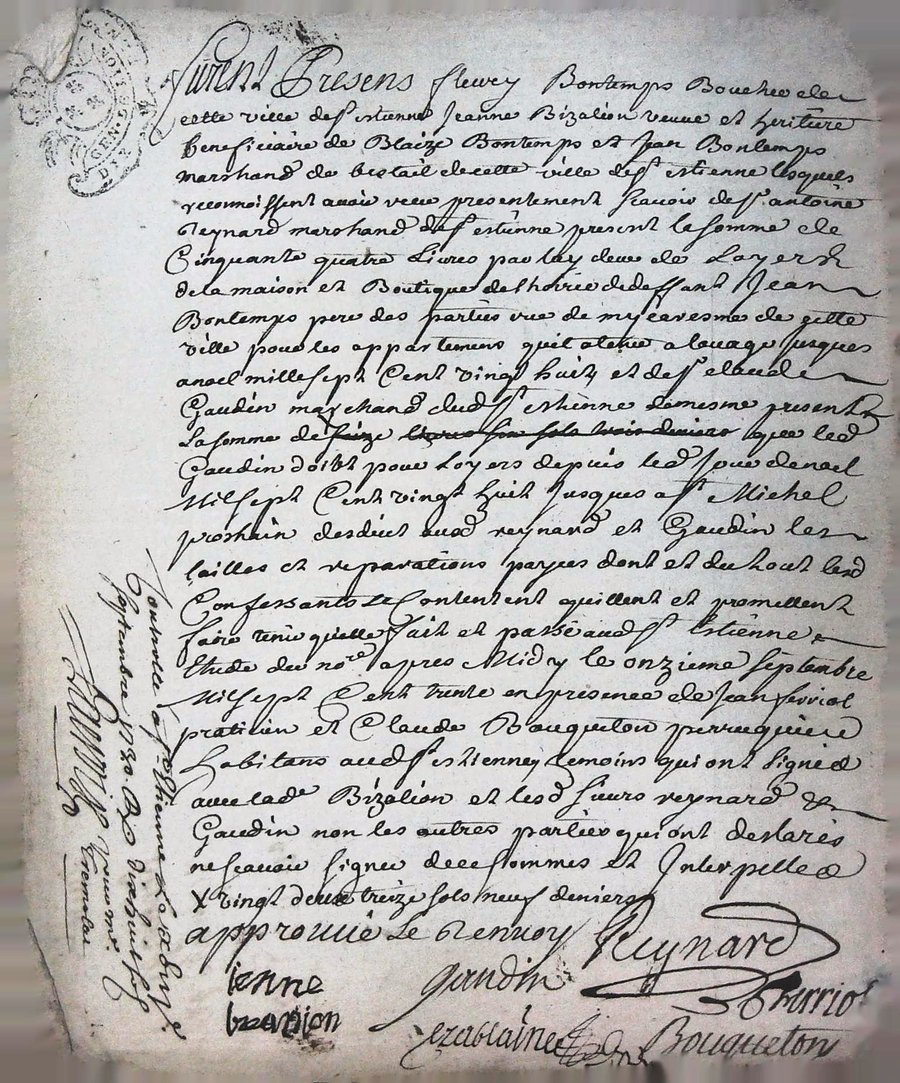 furent Presens fleury Bontemps Boucher de
cette ville de st estienne Jeanne Bizalion veuve et heritiere
beneficiaire de Blaize Bontemps et Jean Bontemps
marchand de bestail de cette ville de st estienne lesquels
reconnoissent avoir receu presentement scavoir de sr antoine
Reynard marchand de st estienne present la somme de
Cinquante quatre Livres par luy deue de Loyers
de la maison et Boutique de lhoirie de deffunt Jean
Bontemps pere des parties rue de mycaresme de cette
ville pour les appartemens quil a tenu a louage jusques
a noel mille sept Cent vingt huit et de sr claude
Gaudin marchand dud st estienne de mesme present
La somme de seize livres six sols trois deniers que led
Gaudin doibt pour Loyers depuis led Jour de noel
Mil sept Cent vingt huit Jusques a st Michel
prochain desduit ausd reynard et Gaudin les
tailles et reparations payees dont et du tout lesd
Confessants se Contentent quittent et promettent
faire tenir quitte fait et passé aud st Estienne
Etude du nore apres Midy le onzieme septembre
Mil sept Cent trente en presence de Jean ferriol
praticien et Claude Bouqueton perruquiere
habitans aud st estienne temoins qui ont signé
avec lade Bizalion et lesd sieurs reynard &
Gaudin non les autres parties qui ont declaré
ne scavoir signer de ce sommes et Interpellé
X vingt deux treize sols neuf deniers
approuvé Le Renvoy
Reynard
ienne
bizalion
gaudin
Ferriol
Bouqueton
Controllé a st Etienne Le
septembre 1730 R dixhuit sols
GEN DE
DIX